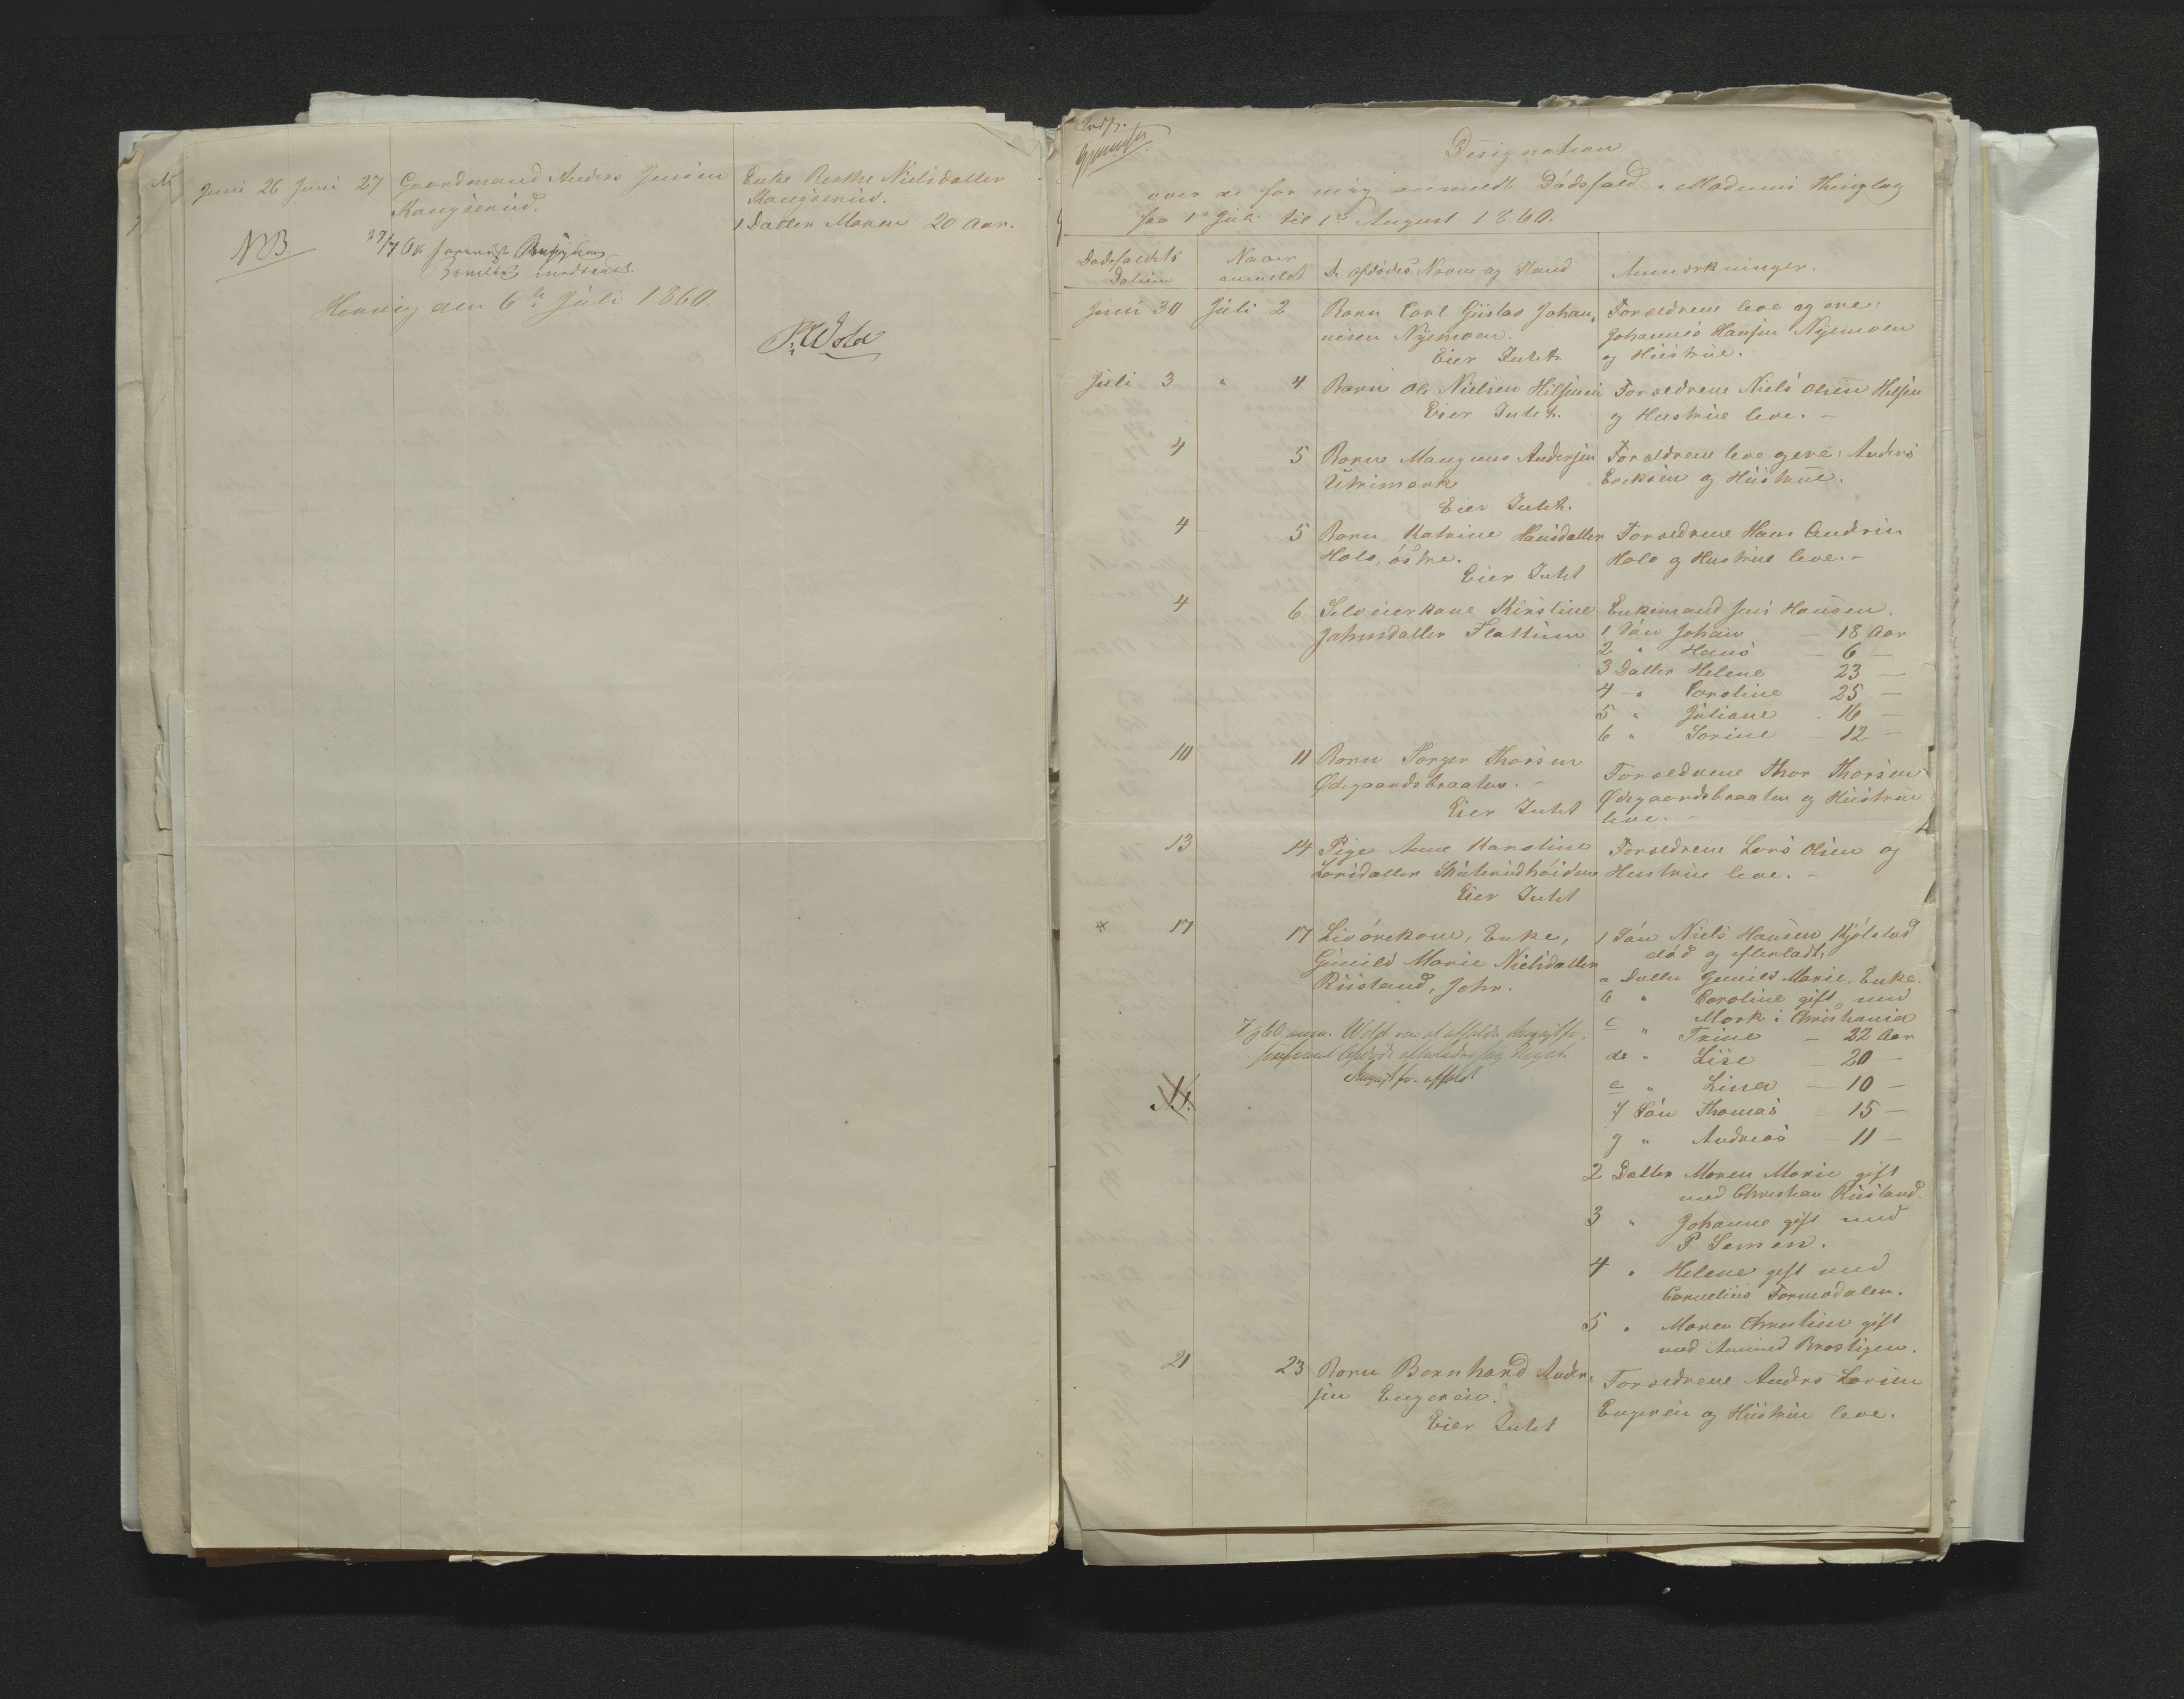 Juni 26 Juni 27 Gaardmand Anders Jensen Enke Berthe Nielsdatter
Kangserud. Kangserud.
1 Datter Maren 20 Aar.
NB
27/7 60
Henvig den 6te Juli 1860.
P. Wold
Designation
over de for mig anmeldte Dødsfald i Modums Thinglag
fra 1ste Juli til 1ste August 1860.
Dødsfaldets Datum
Naar anmeldt
De afdødes Navne og Stand
Anmærkninger.
Juni 30 Juli 2 Barn Carl Gustav Johan- Forældrene leve og ere:
nesen Nyemoen. Johannes Hansen Nyemoen
Eier Intet. og Hustrue.
Juli 3 " 4 Barn Ole Nielsen Hilsen Forældrene Niels Olsen Hilsen
Eier Intet. og Hustrue leve. -
4 5 Barn Mangnus Andersen Forældrene leve og ere: Anders
Utrimark Eriksen og Hustrue.
Eier Intet.
4 5 Barn Katrine Hansdatter Forældrene Hans Andersen
Hole, østre. Hole og Hustrue leve. -
Eier Intet
4 6 Selveierkone Kirstine Enkemand Jens Hansen.
Johnsdatter Flattum 1 Søn Johan - 18 Aar
2 " Hans - 6 -
3 Datter Helene 23 -
4 - " Caroline 25 -
5 " Juliane - 16 -
6 " Sorine - 12 -
10 11 Barn Torger Thorsen Forældrene Thor Thorsen
Ødegaardsbraaten. - Ødegaardsbraaten og Hustrue
Eier Intet leve. -
13 14 Pige Anne Karoline Forældrene Lars Olsen og
Larsdatter Skuterudhøiden Hustrue leve. -
Eier Intet
* 17 17 Livørekone, Enke, 1 Søn Niels Hansen Kjølstad
Gunild Marie Nielsdatter død og efterladt,
Riisland, John. a Datter Gunild Marie. Enke.
b " Caroline gift med
Mork i Christiania
c " Trine - 22 Aar
d " Lise 20 -
e " Lina - 10 -
f Søn Thomas - 15 -
g " Andreas - 11 -
2 Datter Maren Marie gift
med Christian Riisland.
3 " Johanne gift med
P Semen.
4 " Helene gift med
Cornelius Formodalen.
5 " Maren Christine gift
med Amund Brostigen.
21 23 Barn Bernhard Ander- Forældrene Anders Larsen
sen Engeren. Engeren og Hustrue leve.
Eier Intet